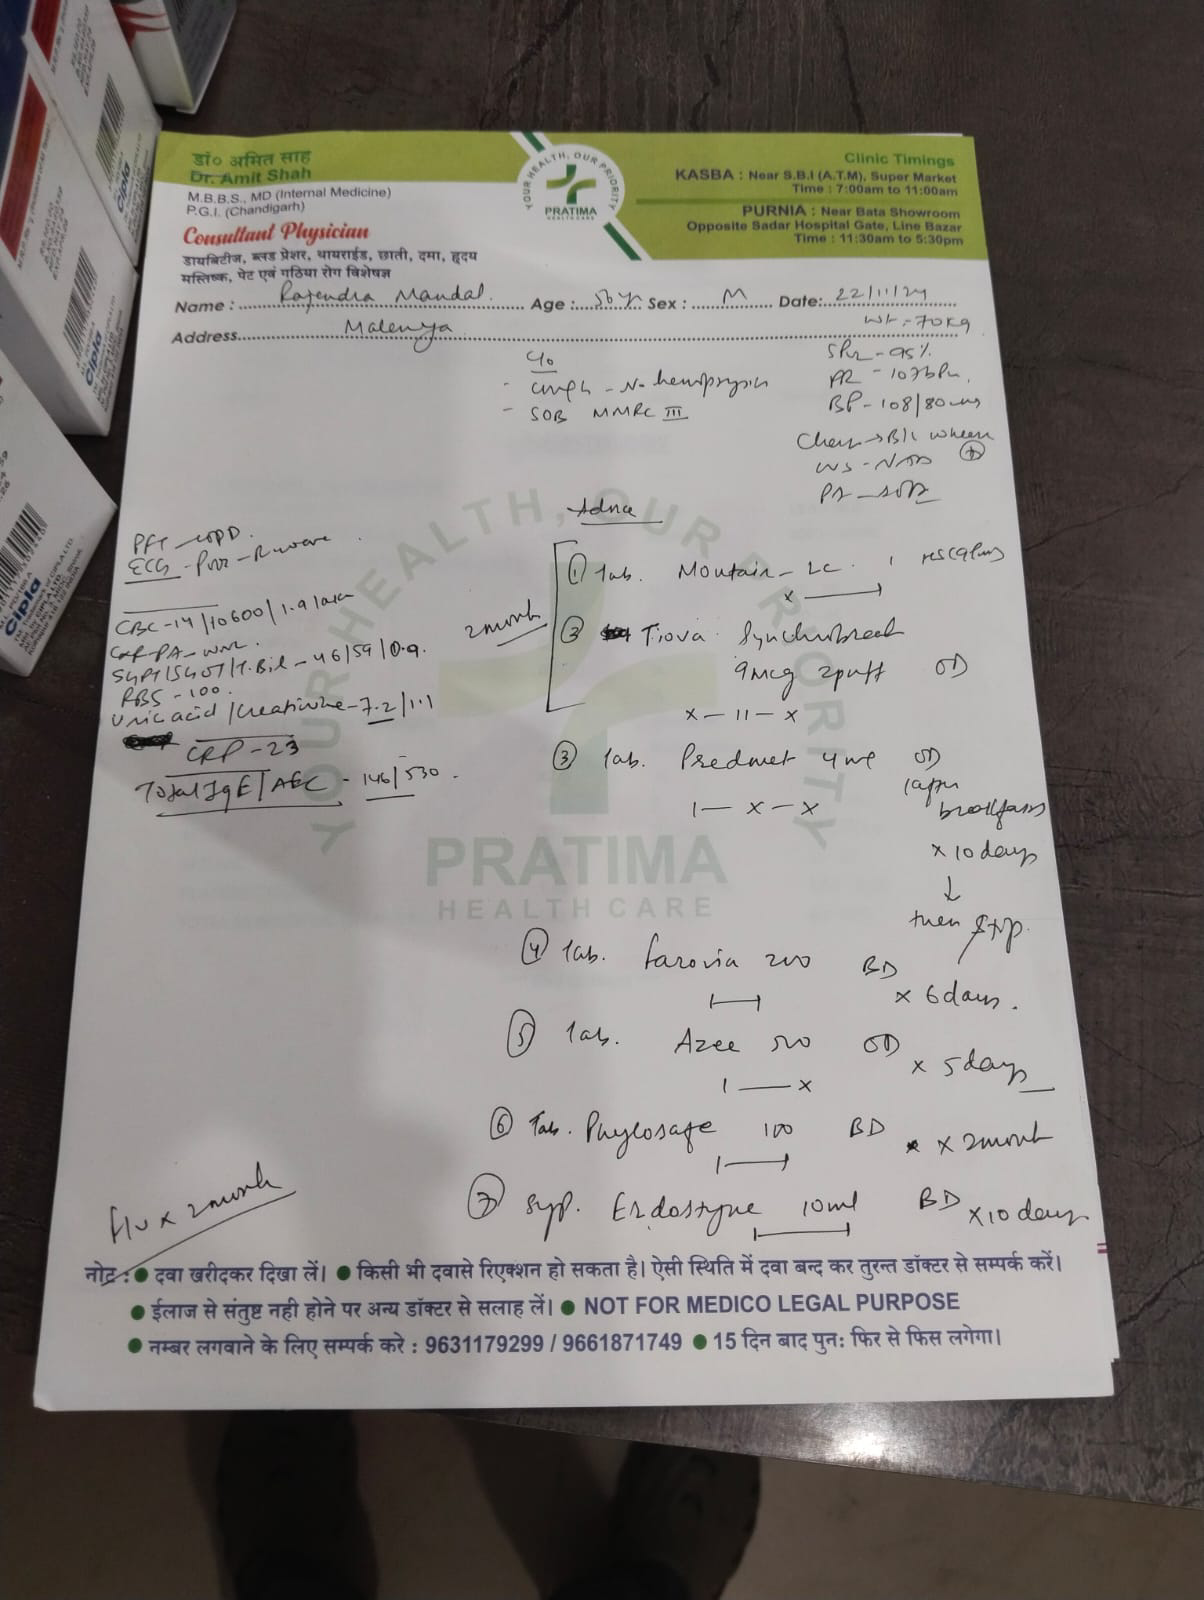 डॉ० अमित साह
Dr. Amit Shah
M.B.B.S., MD (Internal Medicine)
P.G.I. (Chandigarh)
Consultant Physician
डायबिटीज, ब्लड प्रेशर, थायराईड, छाती, दमा, हृदय
मस्तिष्क, पेट एवं गठिया रोग विशेषज्ञ
YOUR HEALTH, OUR PRIORITY
PRATIMA
HEALTH CARE
Clinic Timings
KASBA : Near S.B.I (A.T.M), Super Market
Time : 7:00am to 11:00am
PURNIA : Near Bata Showroom
Opposite Sadar Hospital Gate, Line Bazar
Time : 11:30am to 5:30pm
Name : Rajendra Mandal Age : 56 yr Sex : M Date: 22/11/24
Address Malenya
Wt - 70kg
C/o
- cough - No hemoptysis
- SOB MMRC III
SPO2 - 95%
PR - 107bpm
BP - 108/80
Chest → B/L wheeze +
PA - soft
Advice
PFT - COPD
ECG - Poor - R wave
CBC - 14/10600/1.9
SGPT/SGOT/T.Bil - 46/59/0.9
RBS - 100
Uric acid/Creatinine - 7.2/1.1
CRP - 23
Total IgE/AEC - 146/530
2 month
① Tab. Montair - LC
x
② Tiova Synchrobreath
9mcg 2puff OD
x - 11 - x
③ Tab. Predmet 4mg OD
1 - x - x
(after
breakfast)
x 10 days
↓
then stop
④ Tab. Farovia 200 BD
x 6 days
⑤ Tab. Azee 500 OD
x 5 days
1 — x
⑥ Tab. Phylosafe 100 BD x 2 month
⑦ Syp. Endostyne 10ml BD x 10 days
F/U x 2 month
YOUR HEALTH, OUR PRIORITY
PRATIMA
HEALTH CARE
नोट : ● दवा खरीदकर दिखा लें। ● किसी भी दवासे रिएक्शन हो सकता है। ऐसी स्थिति में दवा बन्द कर तुरन्त डॉक्टर से सम्पर्क करें।
● ईलाज से संतुष्ट नही होने पर अन्य डॉक्टर से सलाह लें। ● NOT FOR MEDICO LEGAL PURPOSE
● नम्बर लगवाने के लिए सम्पर्क करे : 9631179299 / 9661871749 ● 15 दिन बाद पुनः फिर से फिस लगेगा।
Cipla
Cipla
Cipla